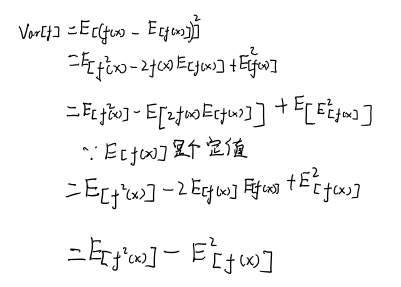 Var[f] = E[(f(x) - E[f(x)])²]
= E[f²(x) - 2f(x)E[f(x)] + E²[f(x)]]
= E[f²(x)] - E[2f(x)E[f(x)]] + E[E²[f(x)]]
∵ E[f(x)]是个定值
= E[f²(x)] - 2E[f(x)]E[f(x)] + E²[f(x)]
= E[f²(x)] - E²[f(x)]